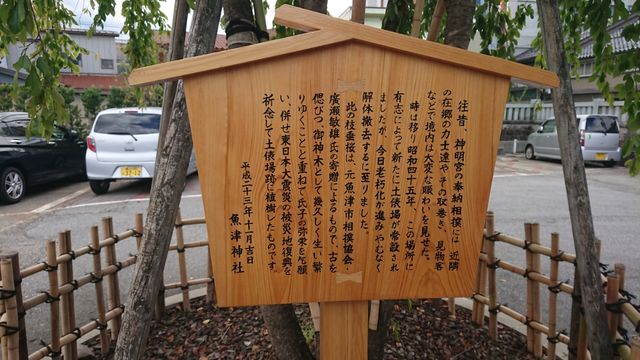 往昔、神明宮の奉納相撲には、近隣
の在郷の力士達やその取巻き、見物客
などで境内は大変な賑わいを見せた。
時は移り昭和四十五年、この場所に
有志によって新たに土俵場が常設され
ましたが、今日老朽化が進みやむなく
解体撤去するに至りました。
此の枝垂桜は、元魚津市相撲協会
廣瀬敏雄氏の寄贈によるもので、古を
偲びつつ御神木として幾久しく生い繁
りゆくことと重ねて氏子の弥栄を祈願
い、併せ東日本大震災の被災地復興を
祈念して土俵場跡に植樹したものです。
平成二十三年十一月吉日
魚津神社